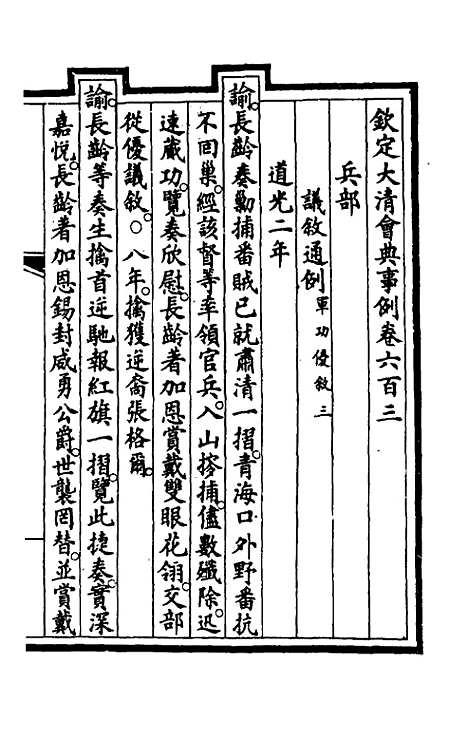 欽定大清會典事例卷六百三
兵部
議敘通例軍功優敘三
道光二年
諭長齡奏勦捕番賊已就肅清一摺。青海口外野番抗
不回巢。經該督等率領官兵。入山搜捕。儘數殲除。迅
速蕆功。覽奏欣慰。長齡著加恩賞戴雙眼花翎。交部
從優議敘。○八年。擒獲逆裔張格爾。
諭。長齡等奏生擒首逆馳報紅旗一摺。覽此捷奏。實深
嘉悅。長齡著加恩錫封威勇公爵。世襲罔替。並賞戴